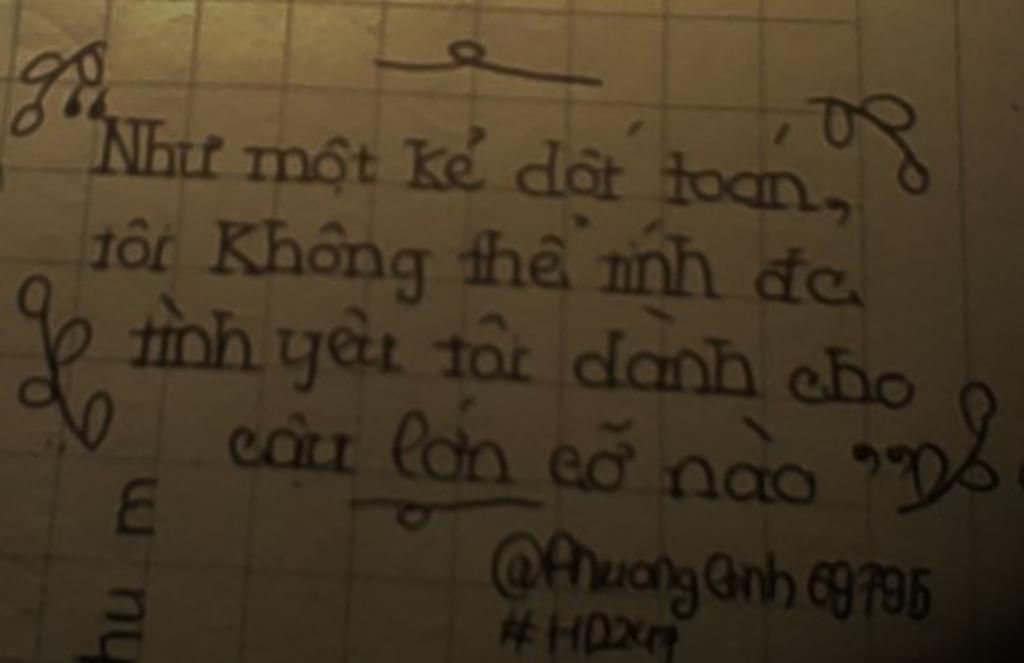 “Như một kẻ dốt toán,
tôi Không thể tính đc
tình yêu tôi dành cho
cậu lớn cỡ nào ”